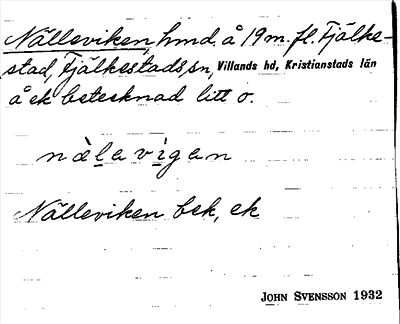 Nälleviken, hmd å 19 m. fl. Fjälke-
stad, Fjälkestads sn, Villands hd, Kristianstads län
å ek betecknad litt o.
nàlavigan
Nälleviken bek, ek
JOHN SVENSSON 1932